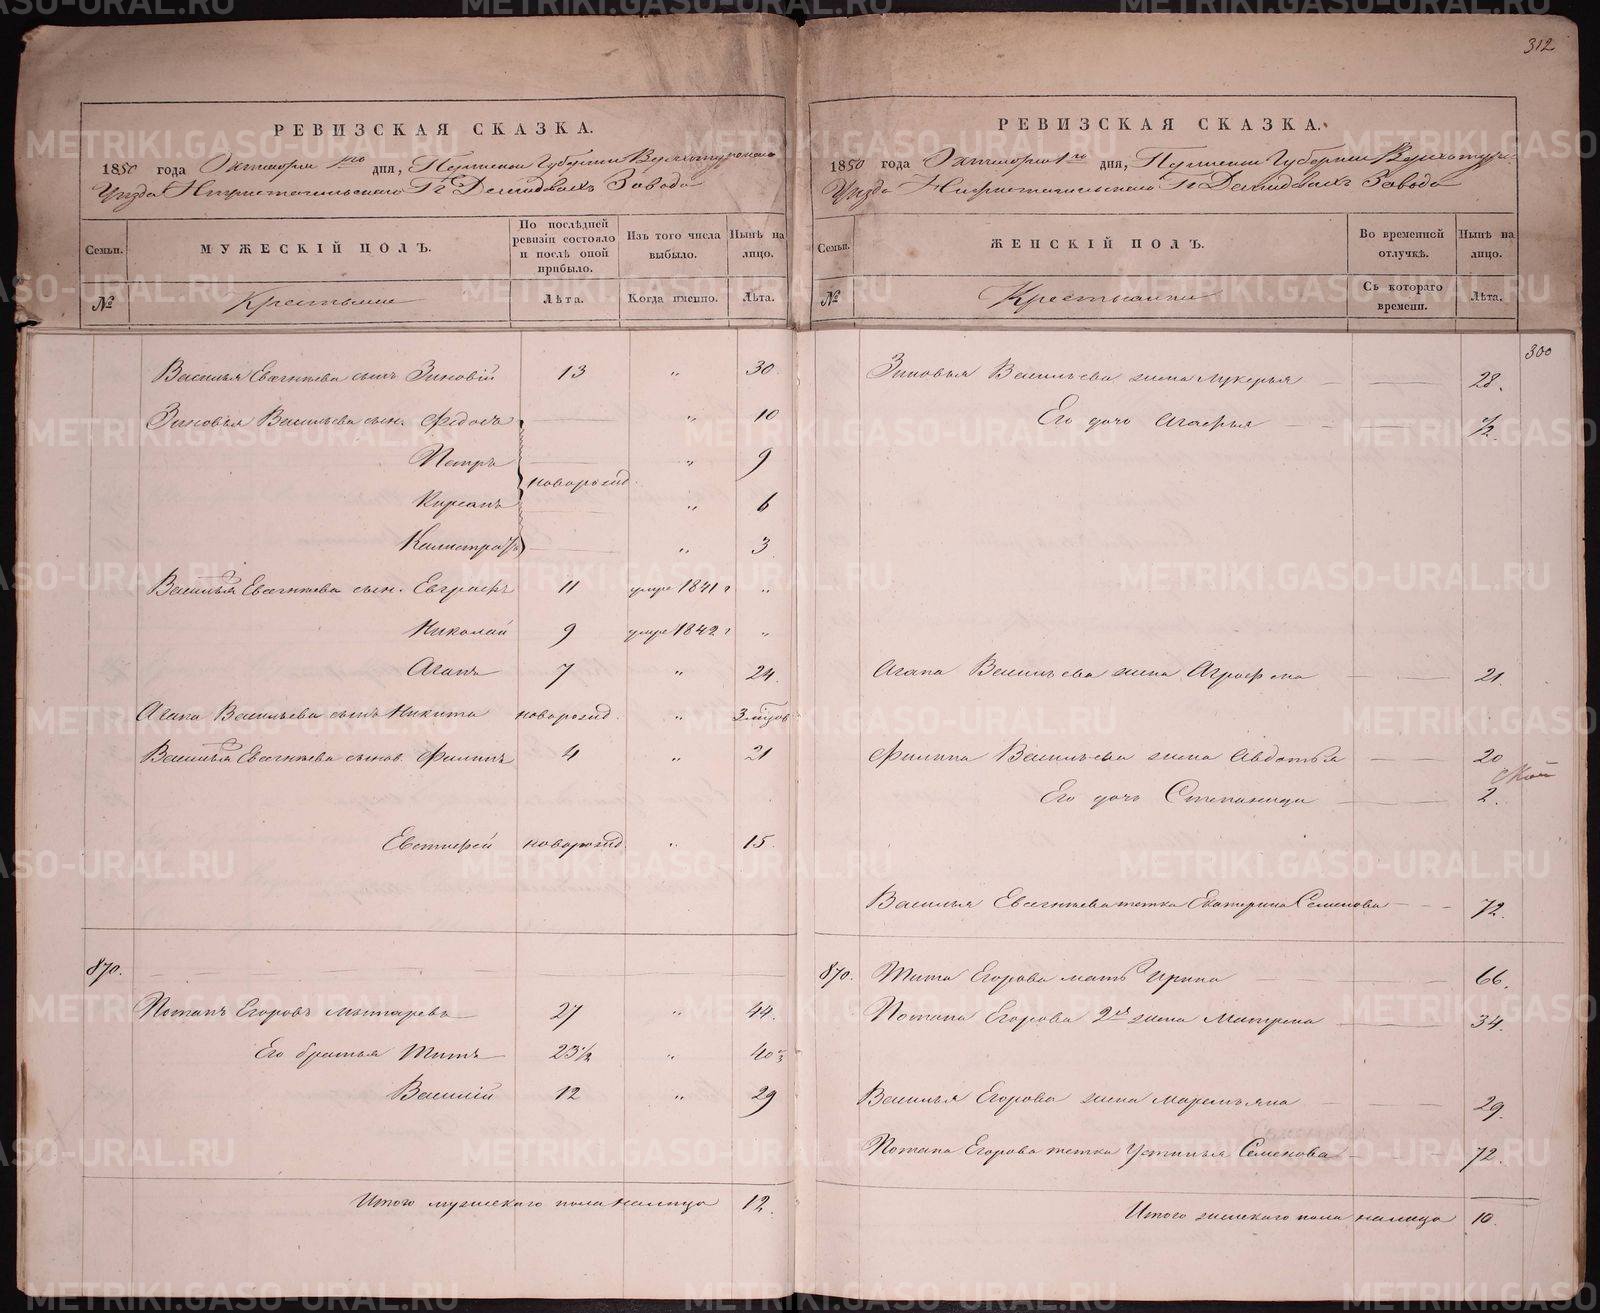 312
РЕВИЗСКАЯ СКАЗКА.
1850 года Октября 1го дня, Пермской Губернии Верхотурскаго
Уѣзда Нижнетагильскаго Гг Демидовыхъ Завода
Семьи.
МУЖЕСКІЙ ПОЛЪ.
По послѣдней ревизіи состояло и послѣ оной прибыло.
Изъ того числа выбыло.
Нынѣ на лицо.
№
Крестьяне
Лѣта.
Когда именно.
Лѣта.
Василья Евгеньева сынъ Зиновій 13 " 30
Зиновья Васильева сын. Федосъ " 10
Петръ " 9
новорожд.
Кирсанъ " 6
Калистратъ " 3
Василья Евгеньева сын. Евграфъ 11 умре 1841 г "
Николай 9 умре 1842 г "
Агапъ 7 " 24.
Агапа Васильева сынъ Никита новорожд. " 3 мѣсяцов
Василья Евгеньева сынов. Филипъ 4 " 21
Евстифей новорожд " 15.
870.
Потапъ Егоровъ Мытаревъ 27 " 44.
Его братья Титъ 23 1/2 " 40
Василій 12 " 29
Итого мужескаго пола налицо 12.
РЕВИЗСКАЯ СКАЗКА.
1850 года Октября 1го дня, Пермской Губерніи Верхотур-
Уѣзда Нижнетагильскаго Гг Демидовыхъ Завода
Семьи.
ЖЕНСКІЙ ПОЛЪ.
Во временной отлучкѣ.
Нынѣ на лицо.
№
Крестьянки
Съ котораго времени.
Лѣта.
300
Зиновья Васильева жена Лукерья 28.
Его дочь Агафья 1/2.
Агапа Васильева жена Аграфена 21.
Филипа Васильева жена Авдотья 20
Его дочь Степанида 2.
Василья Евгеньева тетка Екатерина Семенова 72.
870. Тита Егорова мать Ирина 66.
Потапа Егорова 2я жена Матрена 34.
Василья Егорова жена Маремьяна 29.
Потапа Егорова тетка Устинья Семенова 72.
Итого женскаго пола налицо 10.
METRIKI.GASO-URAL.RU